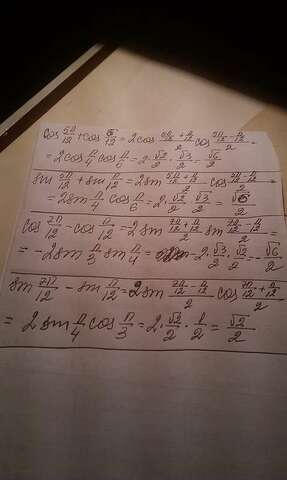 cos 5π/12 + cos π/12 = 2cos (5π/12 + π/12)/2 cos (5π/12 - π/12)/2 =
= 2cos π/4 cos π/6 = 2·√2/2·√3/2 = √6/2
sin 5π/12 + sin π/12 = 2sin (5π/12 + π/12)/2 cos (5π/12 - π/12)/2 =
= 2sin π/4 cos π/6 = 2·√2/2 √3/2 = √6/2
cos 7π/12 - cos π/12 = -2sin (7π/12 + π/12)/2 sin (7π/12 - π/12)/2 =
= -2sin π/3 sin π/4 = -2·√3/2·√2/2 = -√6/2
sin 7π/12 - sin π/12 = 2sin (7π/12 - π/12)/2 cos (7π/12 + π/12)/2
= 2sin π/4 cos π/3 = 2·√2/2·1/2 = √2/2